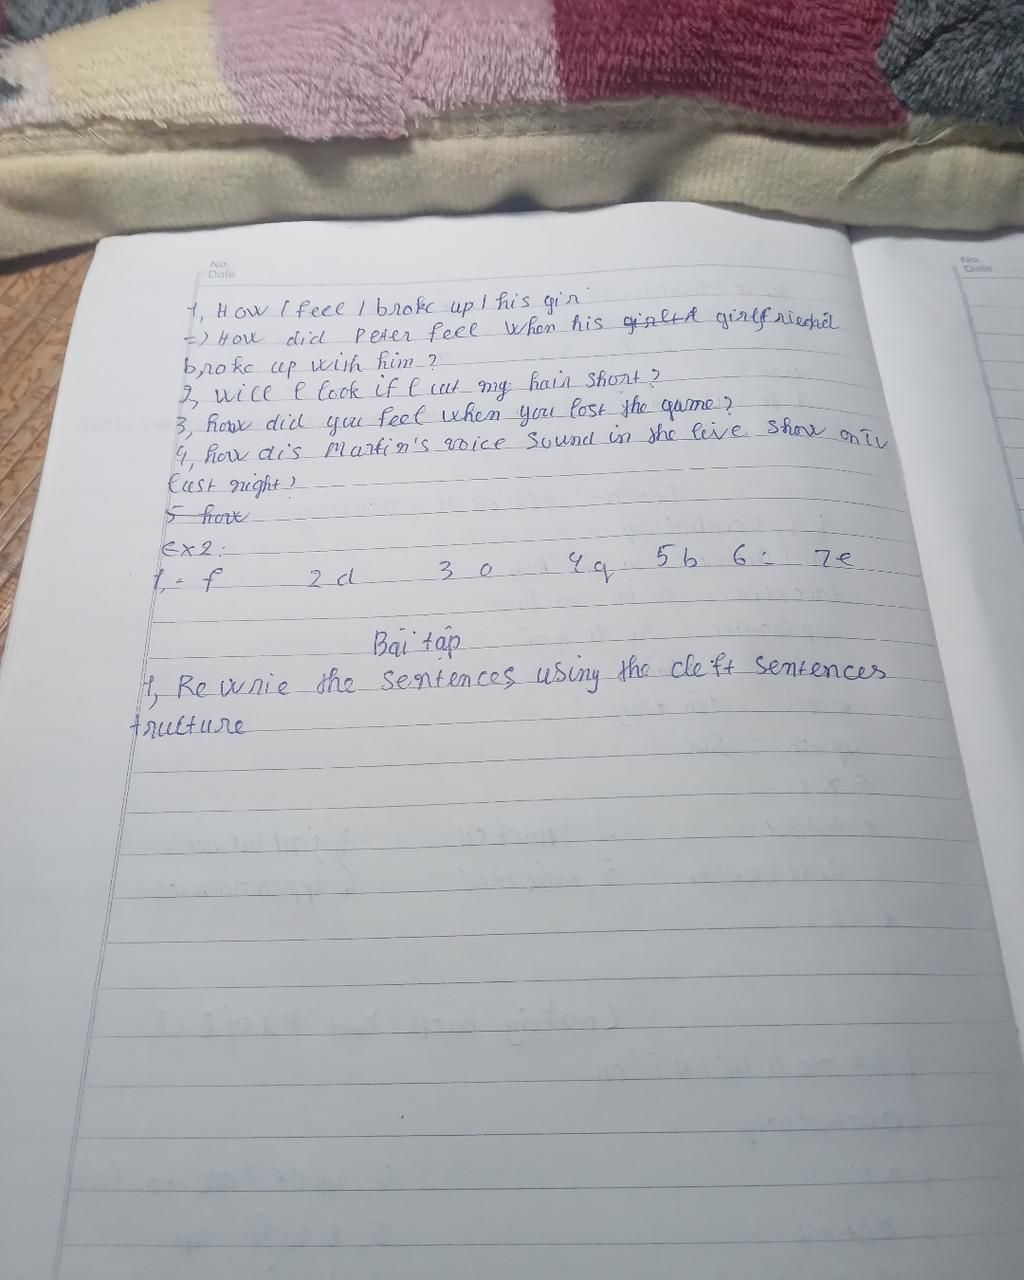 No.
Date
No.
Date
1, How / feel / broke up / his gir
=) How did Peter feel when his girlfriend
broke up with him ?
2, will I look if I cut my hair short ?
3, how did you feel when you lost the game ?
4, how dis Martin's voice sound in the live show on TV
last night)
5 how
Ex2:
1, - f 2 d 3 0 4 g 5 b 6 : 7 e
Bài tập
1, Rewrie the sentences using the cleft sentences
tructure